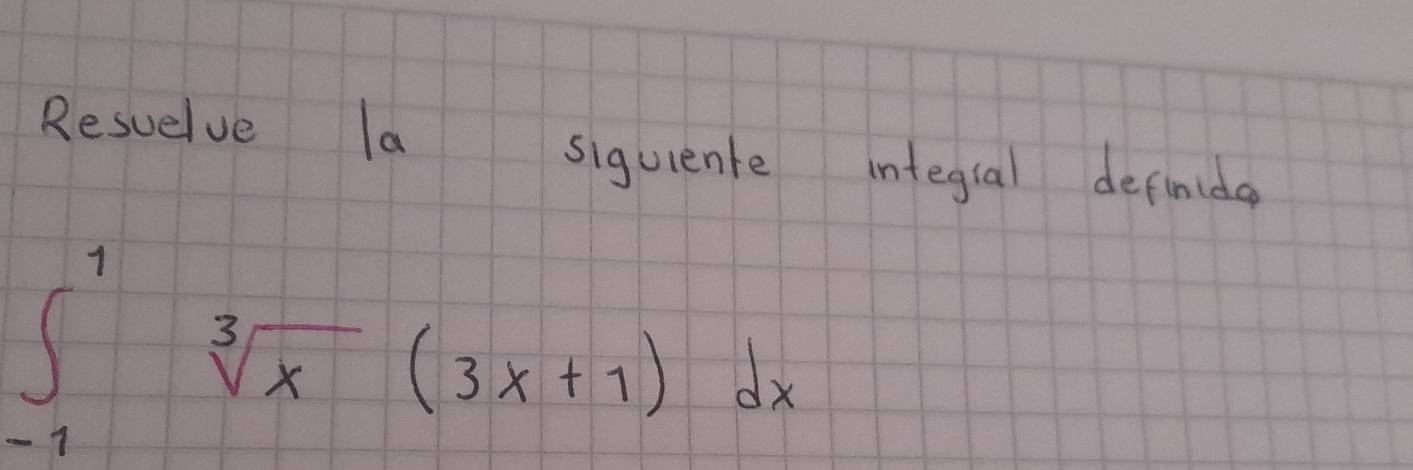 Resuelve la siguiente integral definida
∫₋₁¹ ∛x (3x + 1) dx